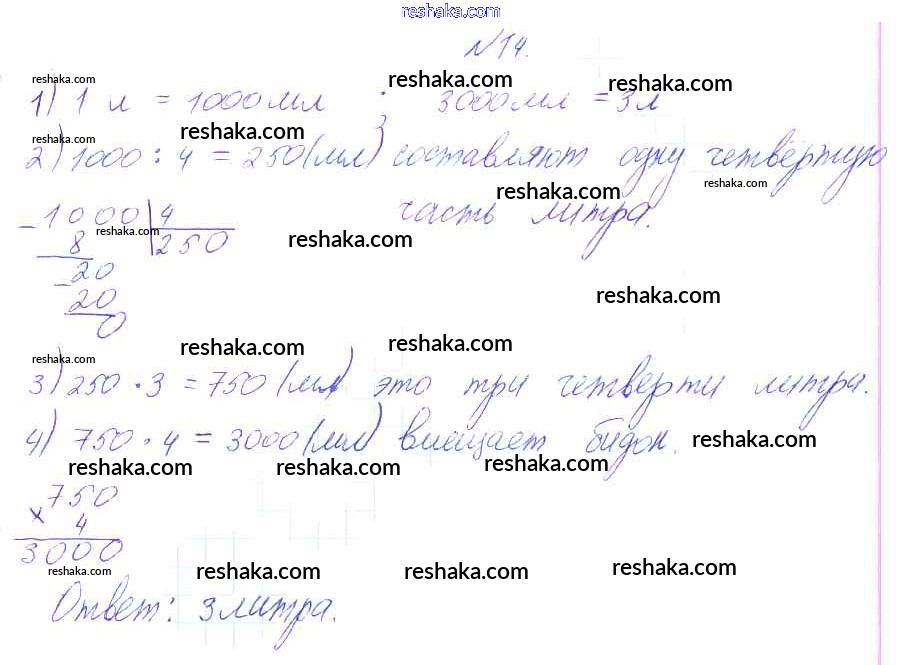 reshaka.com
№14.
reshaka.com reshaka.com reshaka.com
1) 1 л = 1000 мл ; 3000 мл = 3 л
reshaka.com reshaka.com
2) 1000 : 4 = 250 (мл) составляют одну четвёртую
reshaka.com reshaka.com
часть литра.
- 1000 | 4
reshaka.com reshaka.com
8 | 250
- 20
20
reshaka.com
0
reshaka.com reshaka.com reshaka.com
3) 250 · 3 = 750 (мл) это три четверти литра.
4) 750 · 4 = 3000 (мл) вмещает бидон.
reshaka.com
reshaka.com reshaka.com reshaka.com
750
× 4
3000
reshaka.com reshaka.com reshaka.com reshaka.com
Ответ: 3 литра.